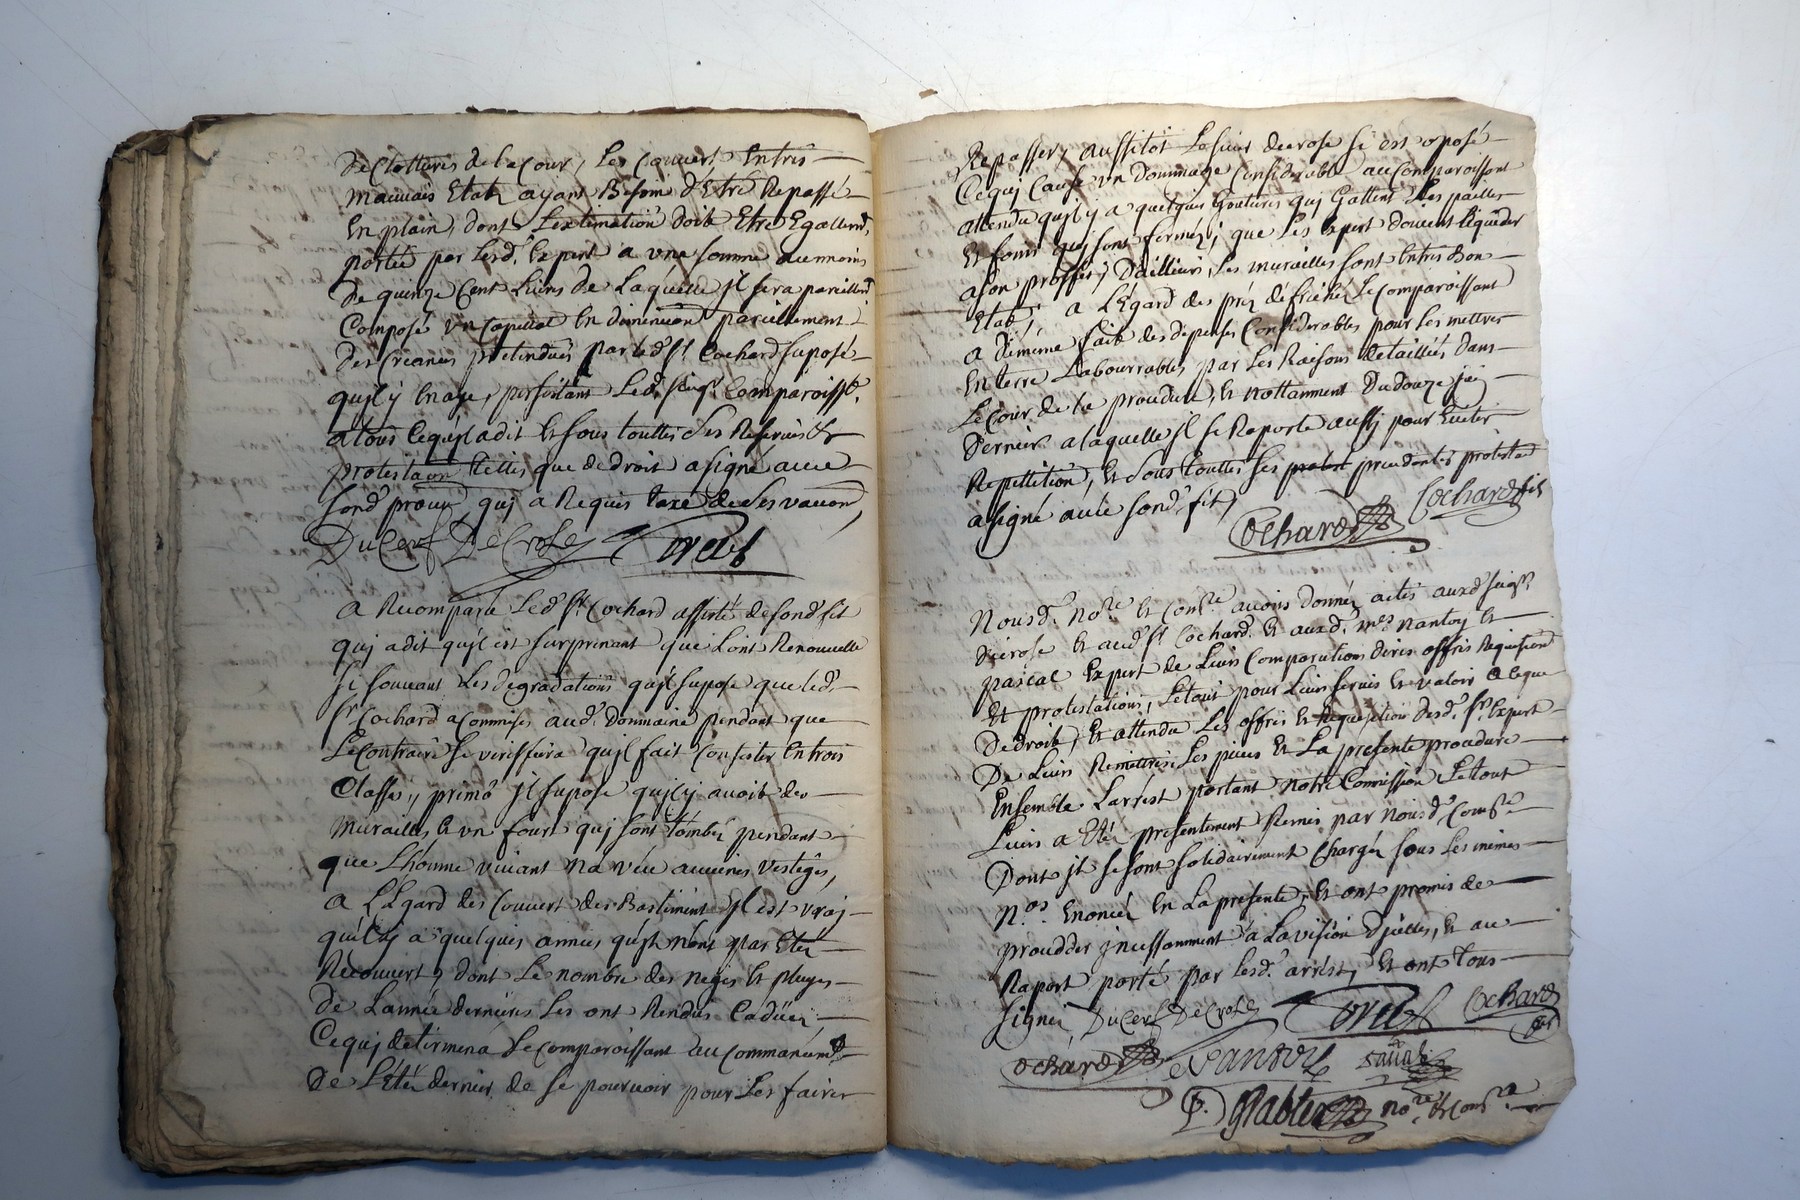 de Clottures de la Cour, les Couvert En tres
mauvais Etat ayant Besoin d'Etre Repassé
En plain, dont L'extimation doit Etre Egallemt,
portée par lesd. Expert a vne somme au moins
de quinze Cent Livres de Laquelle jl sera pareillemt
Composé vn Capital En diminuon pareillement
des Creances pretenduës par led. Sr. Cochard suposé
qujl y En aye, persistant Led. seigr. Comparoisst.
a tous Ce qujl a dit Et sous touttes ses Reserves &
protestaon telles que de droit a signé avec
sond. procur, quj a Requis taxe de ses vacaon,
Du Cerf De Crose Morel
A Recomparu Led. Sr. Cochard assisté de sond. fit
quj a dit qujl est surprenant que L'ont Renouvelle
si souvant Les dégradations qujl supose que led.
Sr. Cochard a Commises aud. Dommaine pendant que
Le contraire se veriffiera qujl fait Consister En trois
Classes, primò jl supose qujl y avoit des
murailles & vn four quj sont tombéz pendant
que L'homme vivant n'a vëu aucunes vestiges,
A L'Egard des Couvert des Bastiments jl est vraj
qu'il y a quelques années qujls n'ont pas Eté
Recouvert, dont Le nombre des neges Et pluyes
de L'année derniere Les ont Rendus Caducs
Ce quj determina Le comparoissant au Commancemt
De L'Eté dernier de se pourvoir pour Les faires
Repasser, aussitot Le sieur decrose s'i est oposé
Ce quj Cause vn dommage Considerable au Comparoissant
attendu qujl y a quelques Goutieres quj Gattent Les pailles
Et foins quj sont fermés, que Les Expert doivent liquider
a son proffit, D'ailleurs, Les murailles sont En tres Bon
Etat, A L'Egard des préz défrichés Le Comparoissant
a de meme fait des depenses Considerables pour Les mettres
En terre Labourrables par Les Raisons detaillées dans
Le Cour de la procedure, & nottamment du douze juin
Dernier a laquelle jl se Raporte aussj pour Eviter
Repettition, Et sous touttes ses precedentes protestaon
a signé avec sond. fit,
Cochard Cochard fit
Nousd. Nore. & Comre. avons donnéz actes aux d. seigr.
Decrose Et aud. Sr. Cochard & aux d. mes Nantoy &
pascal Expert de Leurs Comparutions dires offres Requisitions
Et protestations, Le tout pour Leurs servir Et valoir Ce que
De droit, Et attendu Les offres & Requisition desd. Srs. Expert
De Leurs Remettres Les pieces Et La presente procedure
Ensemble L'arrest portant Notre Commission Le tout
Leurs a Eté presentement Remis par Nousd. Comre.
Dont jls se sont solidairement Chargés sous Les memes
Nos. Enoncés En La presente, Et ont promis de
procedder jncessamment a La vision d'jcelles, & au
Raport porté par lesd. arrest, Et ont tous
signéz Du Cerf De Crose Morel Cochard
fit
Cochard Nantoy
P. Nore. & Comre.